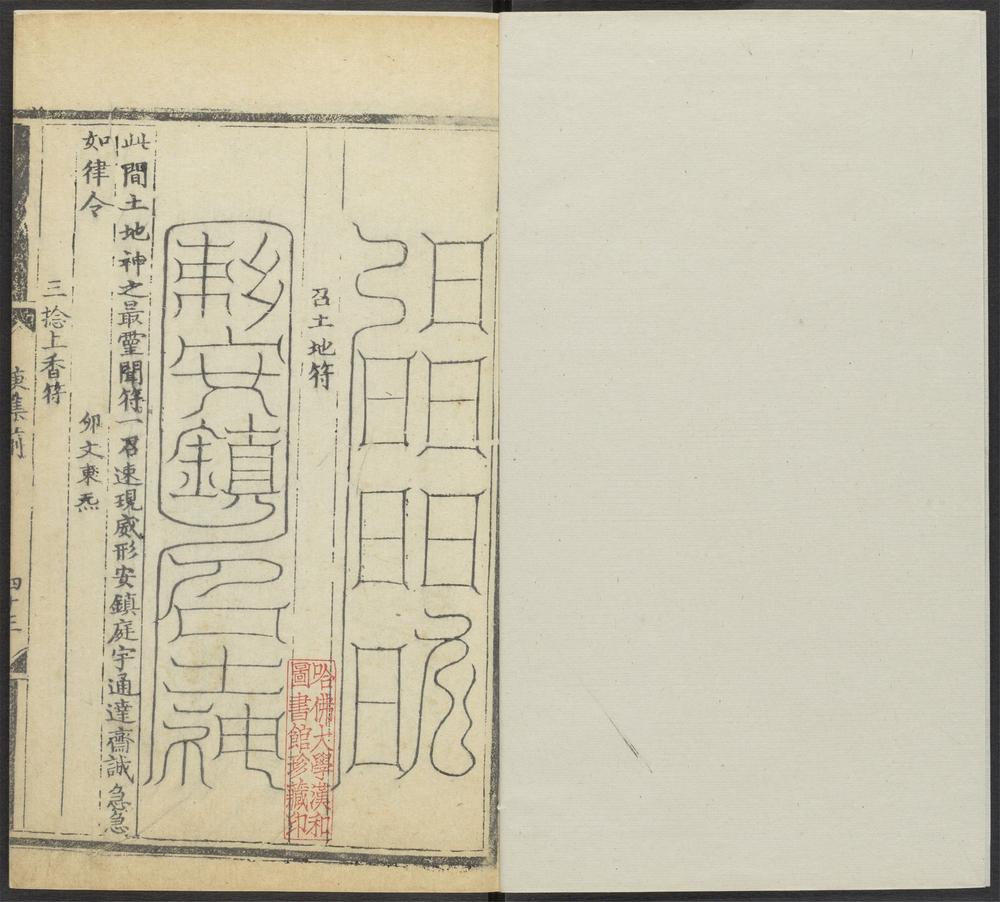 召土地符
敕安鎮召土神
此間土地神之最靈聞符一召速現威形安鎮庭宇通達齋誠急急
如律令
卯文東炁
三捻上香符
四十三
哈佛大學漢和
圖書館珍藏印